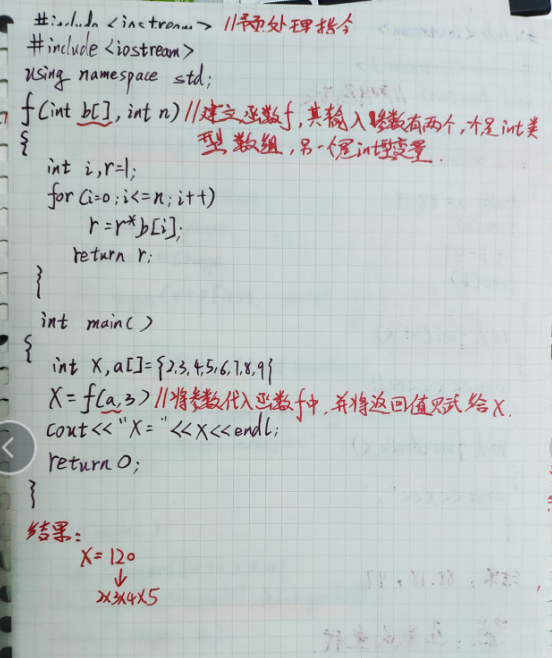 #include <iostream> //预处理指令
#include <iostream>
using namespace std;
f(int b[], int n) //建立函数f,其输入参数有两个,个是int类
型数组,另一个是int型变量.
{
int i,r=1;
for (i=0;i<=n;i++)
r=r*b[i];
return r;
}
int main()
{
int X,a[]={2,3,4,5,6,7,8,9{
X=f(a,3) //将参数代入函数f中,并将返回值赋给X.
cout<<"X="<<X<<endl;
return 0;
}
结果:
X=120
↓
2X3X4X5